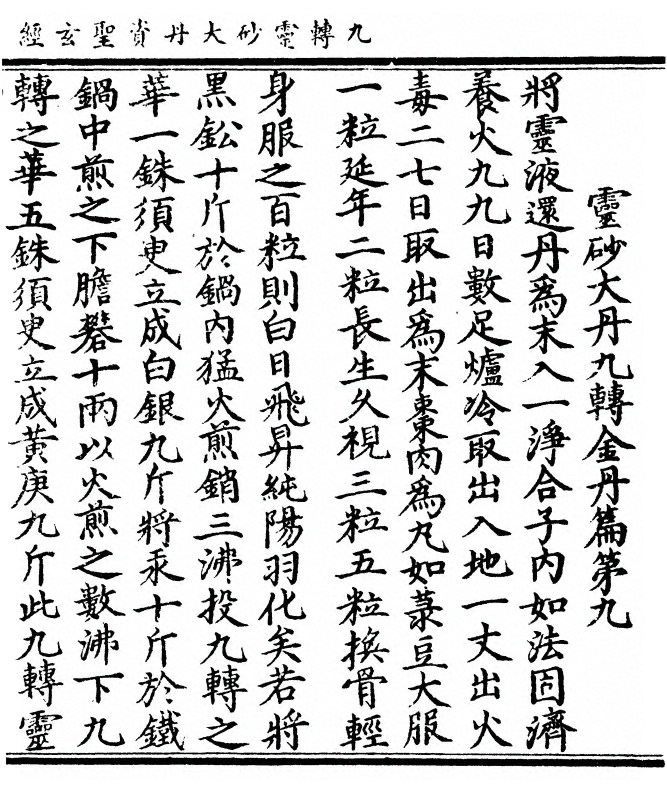 九轉靈砂大丹資聖玄經
靈砂大丹九轉金丹篇第九
將靈液還丹爲末入一淨合子内如法固濟
養火九九日數足爐冷取出入地一丈出火
毒二七日取出爲末棗肉爲丸如菉豆大服
一粒延年二粒長生久視三粒五粒換骨輕
身服之百粒則白日飛昇純陽羽化矣若將
黑鈆十斤於鍋内猛火煎銷三沸投九轉之
華一銖須臾立成白銀九斤將汞十斤於鐵
鍋中煎之下膽礬十兩以火煎之數沸下九
轉之華五銖須臾立成黃庚九斤此九轉靈